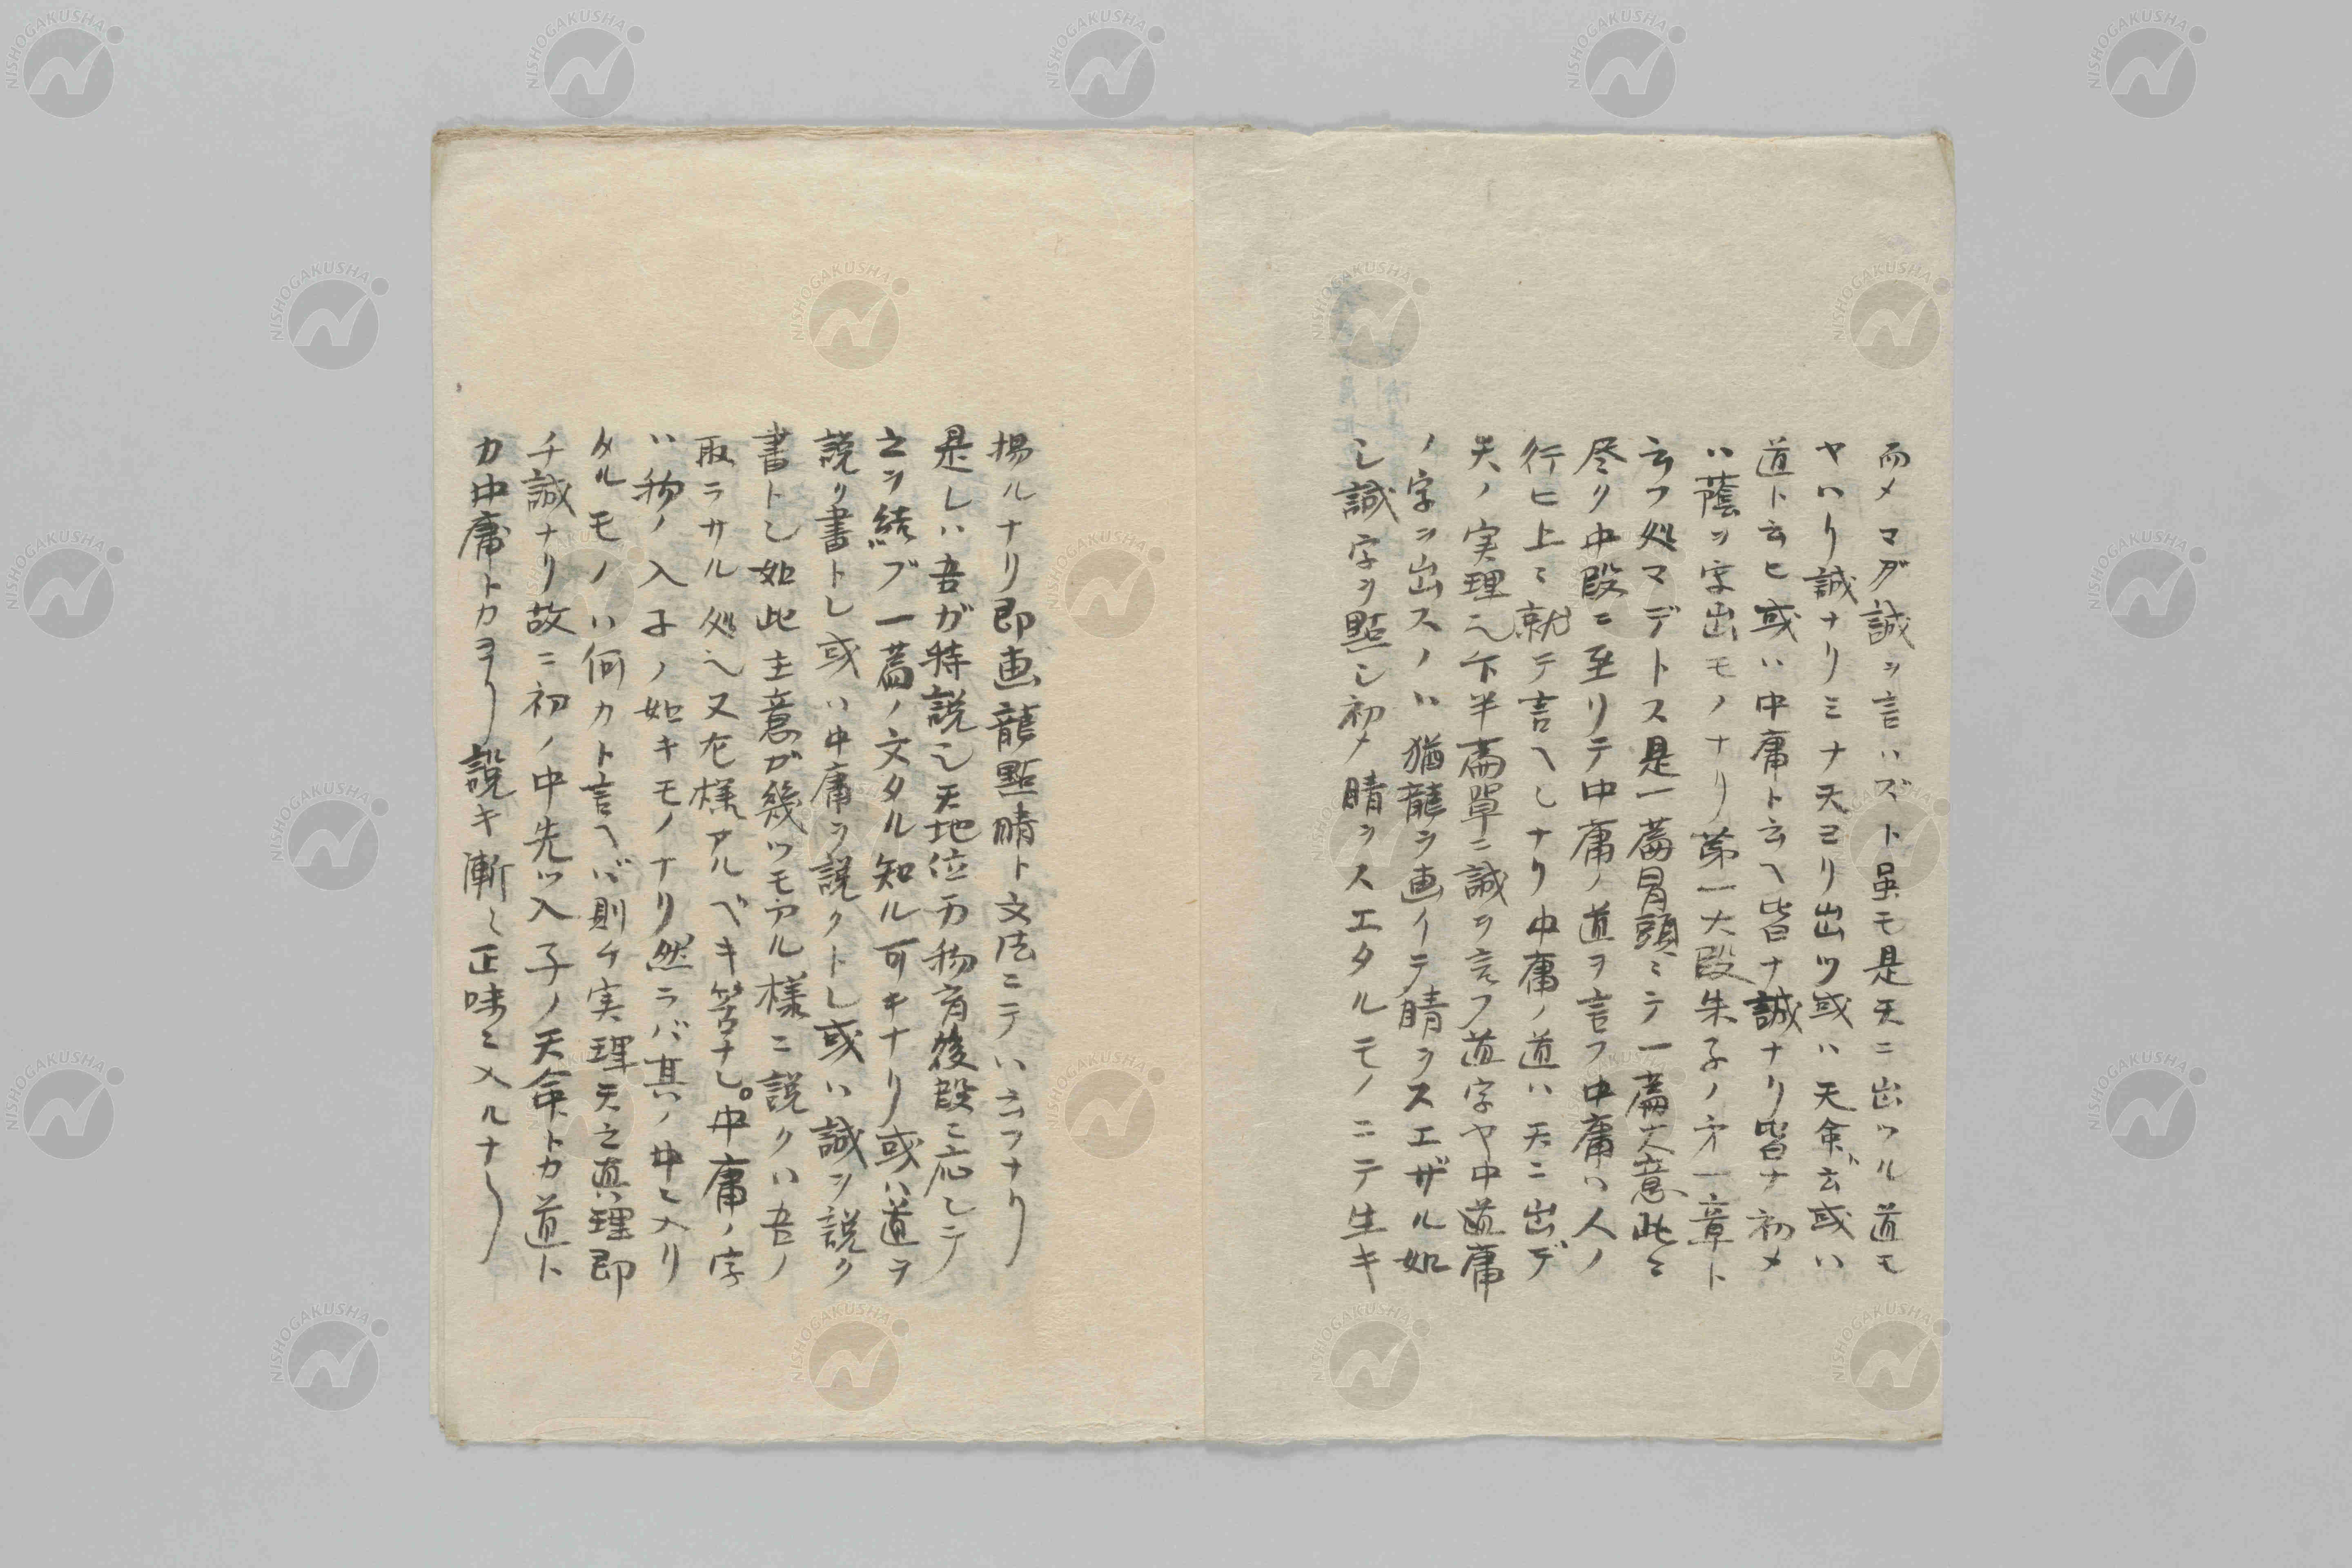 而メマダ誠ヲ言ハズト虽モ是天ニ出ツル道モ
ヤハリ誠ナリミナ天ヨリ出ツ或ハ天命ヾ云或ハ
道ト云ヒ或ハ中庸ト云ヘ皆ナ誠ナリ皆ナ初メ
ハ蔭ヲ字出モノナリ第一大段朱子ノ才一章ト
云フ処マデトス是一篇冐頭ミテ一篇大意此ミ
尽ク中段ニ至リテ中庸ノ道ヲ言フ中庸ハ人ノ
行ヒ上ミ就テ言ヘしナリ中庸ノ道ハ天ニ出デ
天ノ実理乀下半篇單ニ誠ヲ言フ道字ヤ中道庸
ノ字ヲ出スノハ猶龍ヲ画イテ睛ヲスエザル如
し誠字ヲ點し初メ睛ヲスエタルモノニテ生キ
揚ルナリ即画龍點睛ト文法ニテハ云フナリ
是しハ吾ガ特説し天地位万物育後段ミ応しテ
之ヲ結ブ一篇ノ文タル知ル可キナリ或ハ道ヲ
説ク書トし或ハ中庸ヲ説クトし或ハ誠ヲ説ク
書トし如此主意ガ幾ツモアル様ニ説クハ吾ノ
取ラサル処乀又左様アルベキ筈ナし。中庸ノ字
ハ物ノ入子ノ如キモノナリ然ラバ其ノ中ミ入リ
タルモノハ何カト言ヘバ則チ実理天之真理即
チ誠ナリ故ニ初ノ中先ツ入子ノ天命トカ道ト
カ中庸トカヨリ説キ漸々正味ミ入ルナリ
NISHOGAKUSHA